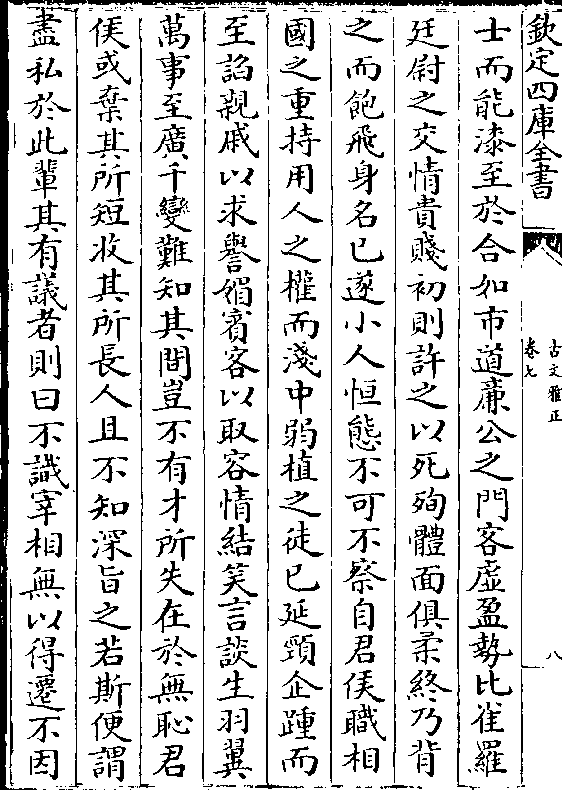 欽定四庫全書
古文雅正
卷七
八
士而能漆至於合如市道亷公之門客虛盈勢比雀羅
廷尉之交情貴賤初則許之以死殉體面俱柔終乃背
之而飽飛身名已遂小人恒態不可不察自君侯職相
國之重持用人之權而淺中弱植之徒已延頸企踵而
至諂親戚以求譽媚賓客以取容情結笑言談生羽翼
萬事至廣千變難知其間豈不有才所失在於無恥君
侯或棄其所短收其所長人且不知深旨之若斯便謂
盡私於此輩其有議者則曰不識宰相無以得遷不因